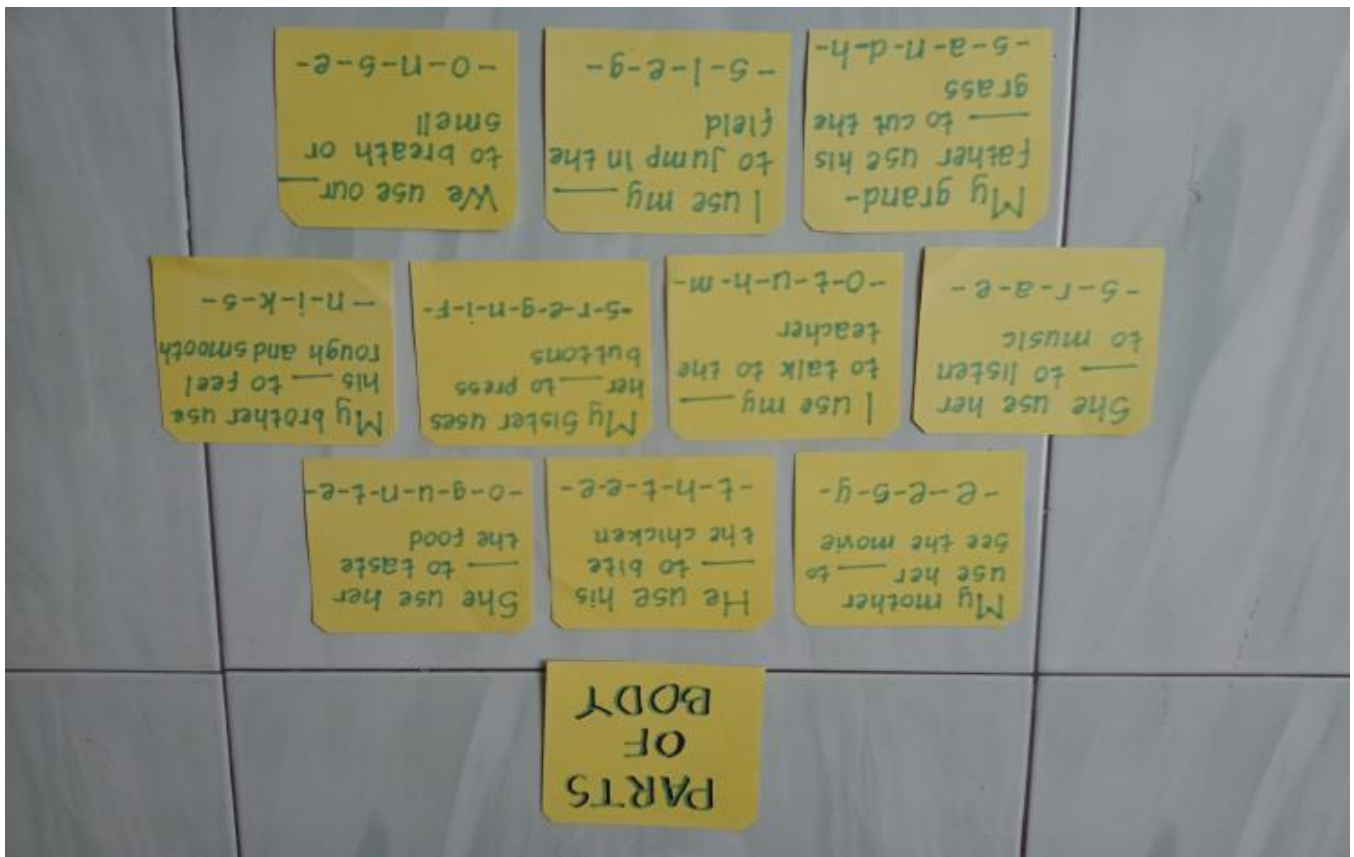 PARTS
OF
BODY
My mother
use her ___ to
see the movie
-e-e-s-y-
He use his
___ to bite
the chicken
-t-h-t-e-e-
She use her
___ to taste
the food
-o-g-u-n-t-e-
She use her
___ to listen
to music
-s-r-a-e-
I use my ___
to talk to the
teacher
-o-t-u-h-m-
My sister uses
her ___ to press
buttons
-s-r-e-g-n-i-f-
My brother use
his ___ to feel
rough and smooth
-n-i-k-s-
My grand-
father use his
___ to cut the
grass
-s-a-n-d-h-
I use my ___
to jump in the
field
-s-l-e-g-
We use our ___
to breath or
smell
-o-n-s-e-